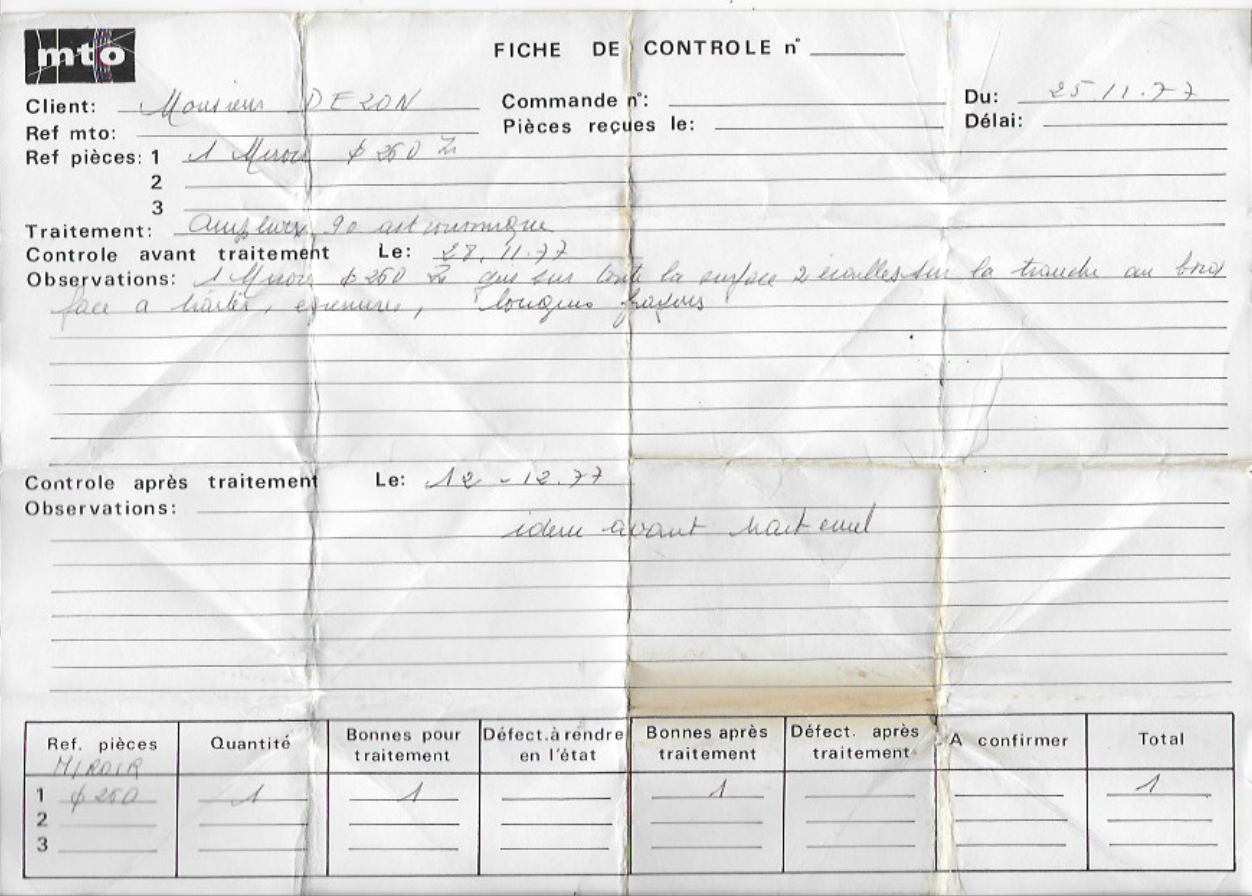 mto
FICHE DE CONTROLE n°
Client: Monsieur DEZON Commande n°: Du: 25.11.77
Ref mto: Pièces reçues le: Délai:
Ref pièces: 1 1 Miroir ϕ 260
2
3
Traitement: 90 astronomique
Controle avant traitement Le: 28.11.77
Observations: 1 Miroir ϕ 260 sur toute la surface 2 écailles sur la tranche au bord
face a traiter, longues
Controle après traitement Le: 12-12.77
Observations:
idem avant traitement
Ref. pièces Quantité Bonnes pour traitement Défect. à rendre en l'état Bonnes après traitement Défect. après traitement A confirmer Total
MIROIR
1 ϕ 260 1 1 1 1
2
3